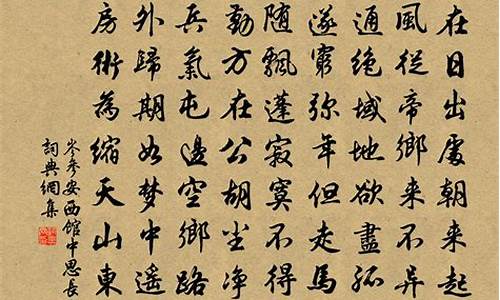 在日出處朝来起
風從帝鄉来不异
通絶域地欲盡孤
遂窮弥年但走馬
随飄蓬寂寞不得
勤方在公胡尘净
兵氣屯邊空鄉路
外歸期如梦中遥
房術為縮天山東
岑參安西館中思長
詞典網集